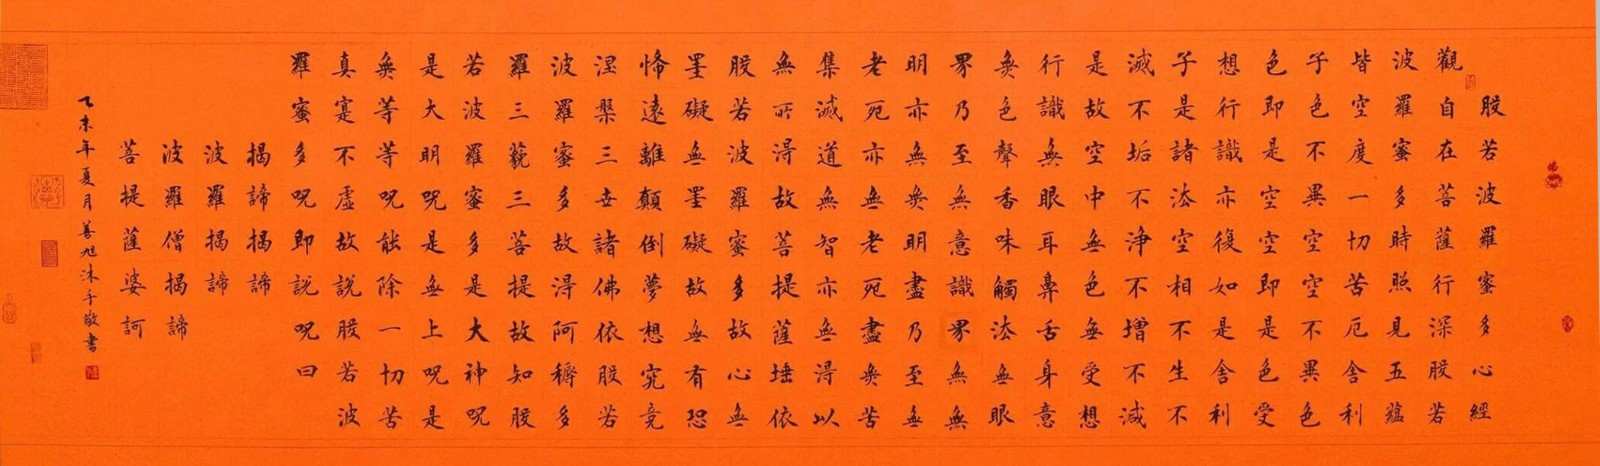 般若波羅蜜多心經
觀自在菩薩行深般若
波羅蜜多時照見五蘊
皆空度一切苦厄舍利
子色不異空空不異色
色即是空空即是色受
想行識亦復如是舍利
子是諸法空相不生不
滅不垢不淨不增不減
是故空中無色無受想
行識無眼耳鼻舌身意
無色聲香味觸法無眼
界乃至無意識界無無
明亦無無明盡乃至無
老死亦無老死盡無苦
集滅道無智亦無得以
無所得故菩提薩埵依
般若波羅蜜多故心無
罣礙無罣礙故無有恐
怖遠離顛倒夢想究竟
涅槃三世諸佛依般若
波羅蜜多故得阿耨多
羅三藐三菩提故知般
若波羅蜜多是大神呪
是大明呪是無上呪是
無等等呪能除一切苦
真寔不虛故說般若波
羅蜜多呪即說呪曰
揭諦揭諦
波羅揭諦
波羅僧揭諦
菩提薩婆訶
乙未年夏月善旭沐手敬書